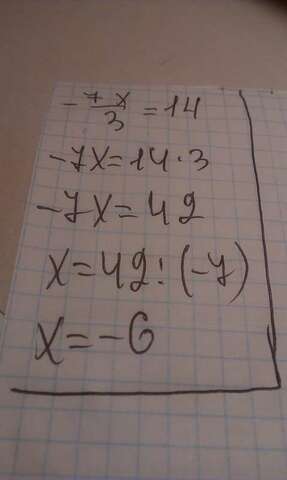 -7x/3 = 14
-7x=14·3
-7x=42
x=42:(-7)
x=-6